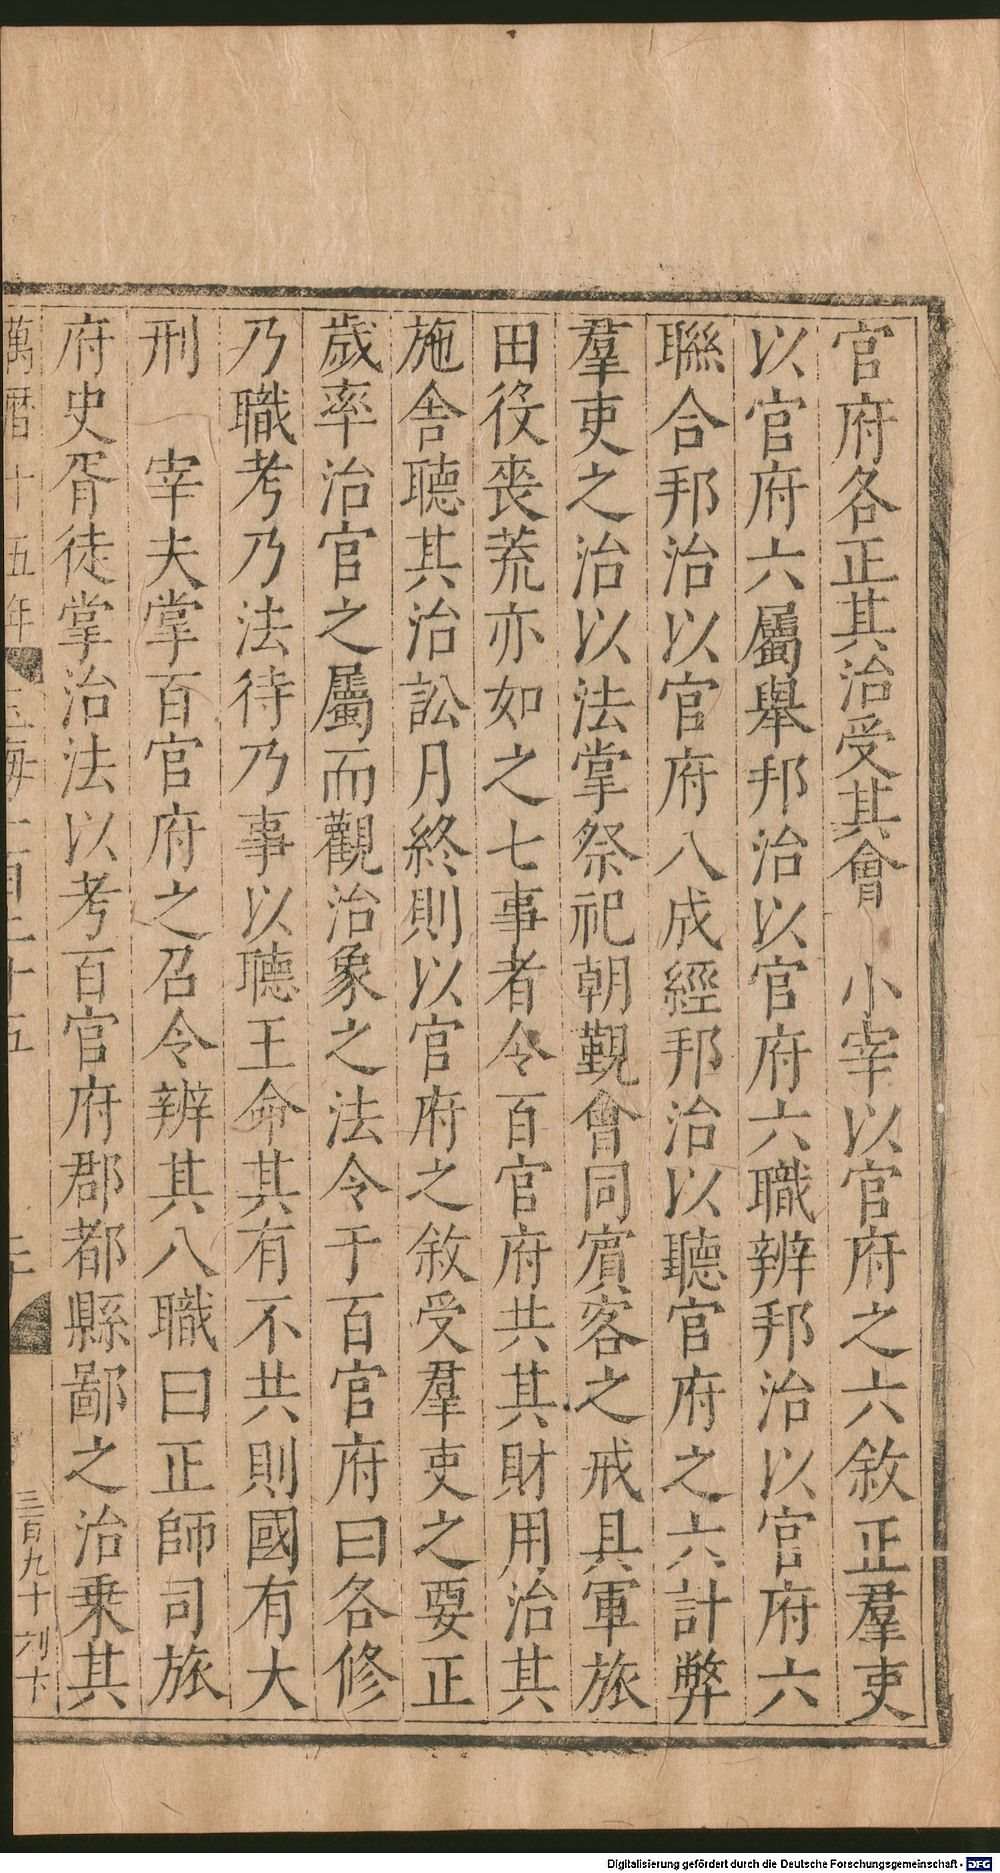 官府各正其治受其會　小宰以官府之六敘正羣吏
以官府六屬舉邦治以官府六職辨邦治以官府六
聯合邦治以官府八成經邦治以聽官府之六計弊
羣吏之治以法掌祭祀朝覲會同賓客之戒具軍旅
田役喪荒亦如之七事者令百官府共其財用治其
施舍聽其治訟月終則以官府之敘受羣吏之要正
歲率治官之屬而觀治象之法令于百官府曰各修
乃職考乃法待乃事以聽王命其有不共則國有大
刑　宰夫掌百官府之召令辨其八職曰正師司旅
府史胥徒掌治法以考百官府郡都縣鄙之治乗其
萬曆十五年
三百九十
Digitalisierung gefördert durch die Deutsche Forschungsgemeinschaft - DFG